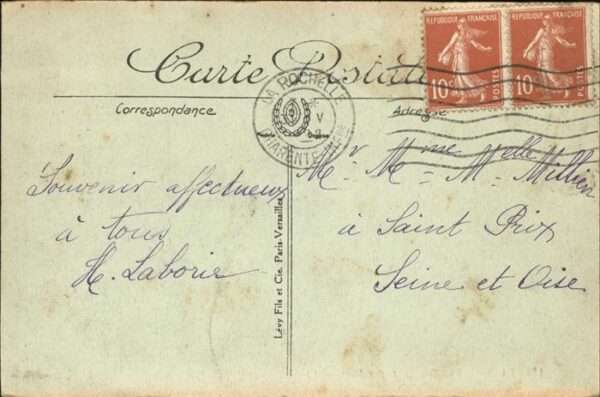 Carte Postale
RÉPUBLIQUE FRANÇAISE
10c
POSTES
RÉPUBLIQUE FRANÇAISE
10c
POSTES
LA ROCHELLE
V
CHARENTE
Correspondance
Adresse
Souvenir affectueux
à tous
H. Laborie
Mr Mme Melle Millien
à Saint Prix
Seine et Oise
Lévy Fils et Cie, Paris-Versailles